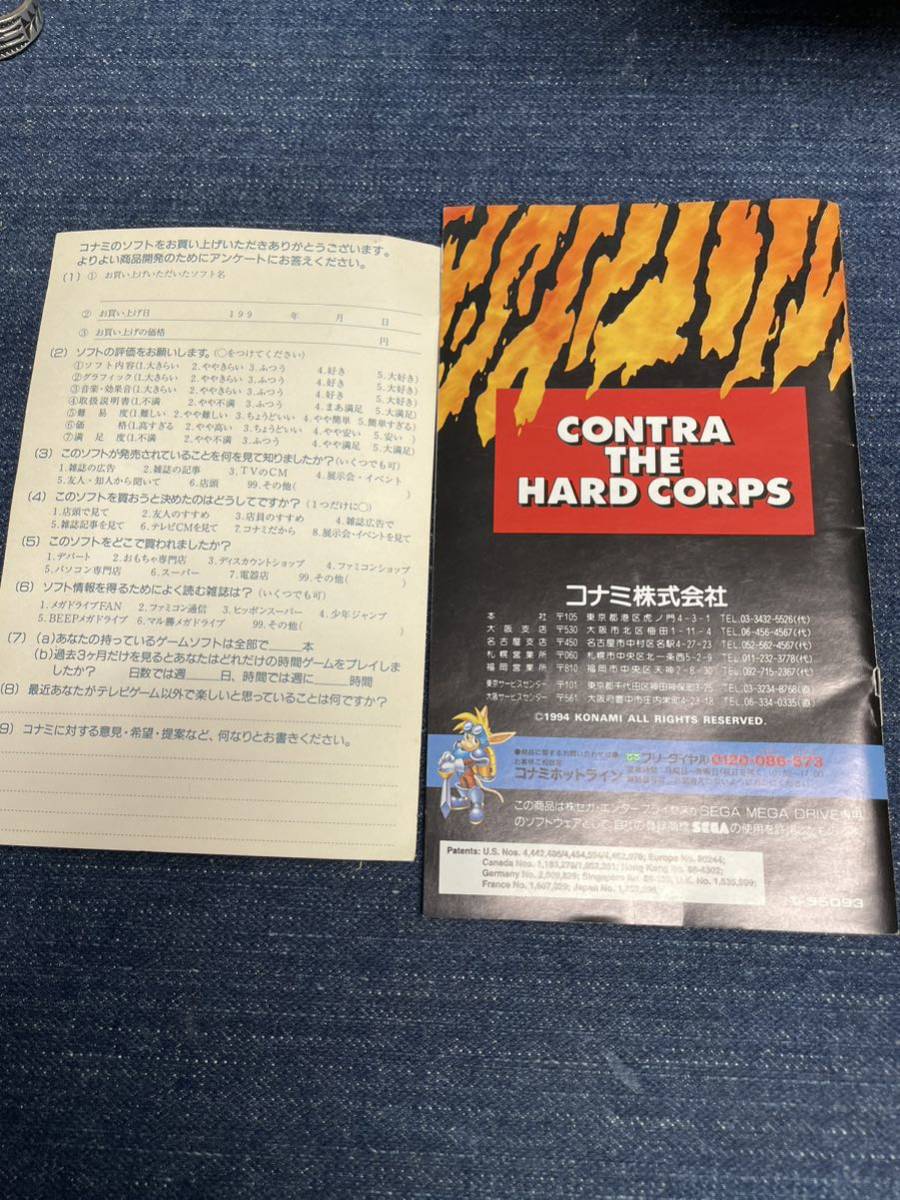 コナミのソフトをお買い上げいただきありがとうございます。
よりよい商品開発のためにアンケートにお答えください。
(1) ① お買い上げいただいたソフト名
② お買い上げ日 199 年 月 日
③ お買い上げの価格 円
(2) ソフトの評価をお願いします。(○をつけてください)
①ソフト内容(1.大きらい 2.ややきらい 3.ふつう 4.好き 5.大好き)
②グラフィック(1.大きらい 2.ややきらい 3.ふつう 4.好き 5.大好き)
③音楽・効果音(1.大きらい 2.ややきらい 3.ふつう 4.好き 5.大好き)
④取扱説明書(1.不満 2.やや不満 3.ふつう 4.まあ満足 5.大満足)
⑤難易度(1.難しい 2.やや難しい 3.ちょうどいい 4.やや簡単 5.簡単すぎる)
⑥価格(1.高すぎる 2.やや高い 3.ちょうどいい 4.やや安い 5.安い)
⑦満足度(1.不満 2.やや不満 3.ふつう 4.やや満足 5.大満足)
(3) このソフトが発売されていることを何を見て知りましたか?(いくつでも可)
1.雑誌の広告 2.雑誌の記事 3.TVのCM 4.展示会・イベント
5.友人・知人から聞いて 6.店頭 99.その他( )
(4) このソフトを買おうと決めたのはどうしてですか?(1つだけに○)
1.店頭で見て 2.友人のすすめ 3.店員のすすめ 4.雑誌広告で
5.雑誌記事を見て 6.テレビCMを見て 7.コナミだから 8.展示会・イベントを見て
(5) このソフトをどこで買われましたか?
1.デパート 2.おもちゃ専門店 3.ディスカウントショップ 4.ファミコンショップ
5.パソコン専門店 6.スーパー 7.電器店 99.その他( )
(6) ソフト情報を得るためによく読む雑誌は?(いくつでも可)
1.メガドライブFAN 2.ファミコン通信 3.ヒッポンスーパー 4.少年ジャンプ
5.BEEPメガドライブ 6.マル勝メガドライブ 99.その他( )
(7) (a)あなたの持っているゲームソフトは全部で____本
(b)過去3ヶ月だけを見るとあなたはどれだけの時間ゲームをプレイしま
したか? 日数では週____日、時間では週に____時間
(8) 最近あなたがテレビゲーム以外で楽しいと思っていることは何ですか?
9) コナミに対する意見・希望・提案など、何なりとお書きください。
CONTRA
THE
HARD CORPS
コナミ株式会社
本社 〒105 東京都港区虎ノ門4-3-1 TEL.03-3432-5526(代)
大阪支店 〒530 大阪市北区梅田1-11-4 TEL.06-456-4567(代)
名古屋支店 〒450 名古屋市中村区名駅4-27-23 TEL.052-562-4567(代)
札幌営業所 〒060 札幌市中央区北一条西5-2-9 TEL.011-232-3778(代)
福岡営業所 〒810 福岡市中央区天神2-8-30 TEL.092-715-2367(代)
東京サービスセンター 〒101 東京都千代田区神田神保町3-25 TEL.03-3234-8768(直)
大阪サービスセンター 〒561 大阪府豊中市庄内栄町4-23-18 TEL.06-334-0335(直)
©1994 KONAMI ALL RIGHTS RESERVED.
●商品に関するお問い合わせは
お客様ご相談室
コナミホットライン フリーダイヤル 0120-086-573
この商品は株セガ・エンタープライゼスがSEGA MEGA DRIVE専用
のソフトウェアとして、自社の登録商標SEGAの使用を許
Patents: U.S. Nos. 4,442,486/4,454,594/4,462,076; Europe No. 80244;
Canada Nos. 1,183,276/1,082,351; Hong Kong No. 88-4302;
Germany No. 2,609,826; Singapore No. 88-155; U.K. No. 1,535,999;
France No. 1,607,029; Japan No. 1,632,396
95093